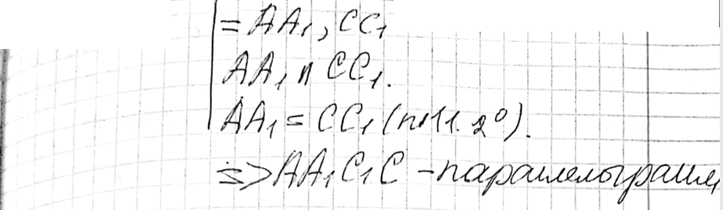 = AA₁, CC₁
AA₁ и CC₁.
AA₁ = CC₁ (п.11. 2⁰).
=> AA₁C₁C - параллелограмм